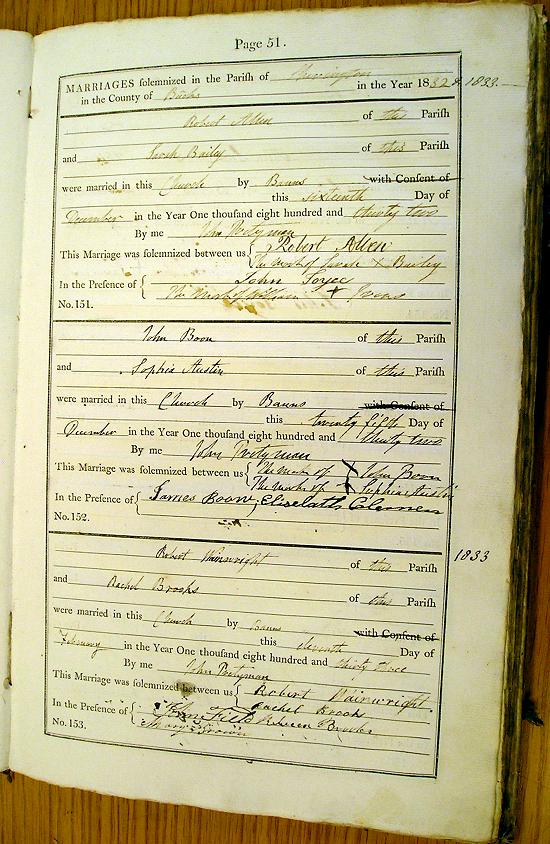 Page 51.
MARRIAGES solemnized in the Parish of
in the County of Bucks in the Year 1832 & 1833.
Robert Allen of this Parish
and Sarah Bailey of this Parish
were married in this Church by Banns with Consent of
this sixteenth Day of
December in the Year One thousand eight hundred and thirty two
By me John
This Marriage was solemnized between us { Robert Allen
The mark of Sarah X Bailey
In the Presence of { John Joyce
The mark of William X
No. 151.
John Boon of this Parish
and Sophia Austin of this Parish
were married in this Church by Banns with Consent of
this twenty fifth Day of
December in the Year One thousand eight hundred and thirty two
By me John
This Marriage was solemnized between us { The mark of X John Boon
The mark of X Sophia Austin
In the Presence of { James Boon, Elizabeth Clemens
No. 152.
1833
Robert Wainwright of this Parish
and Rachel Brooks of this Parish
were married in this Church by Banns with Consent of
this eleventh Day of
February in the Year One thousand eight hundred and thirty three
By me John
This Marriage was solemnized between us { Robert Wainwright
Rachel Brooks
In the Presence of { John Field Rebecca Brooks
Mary Brown
No. 153.